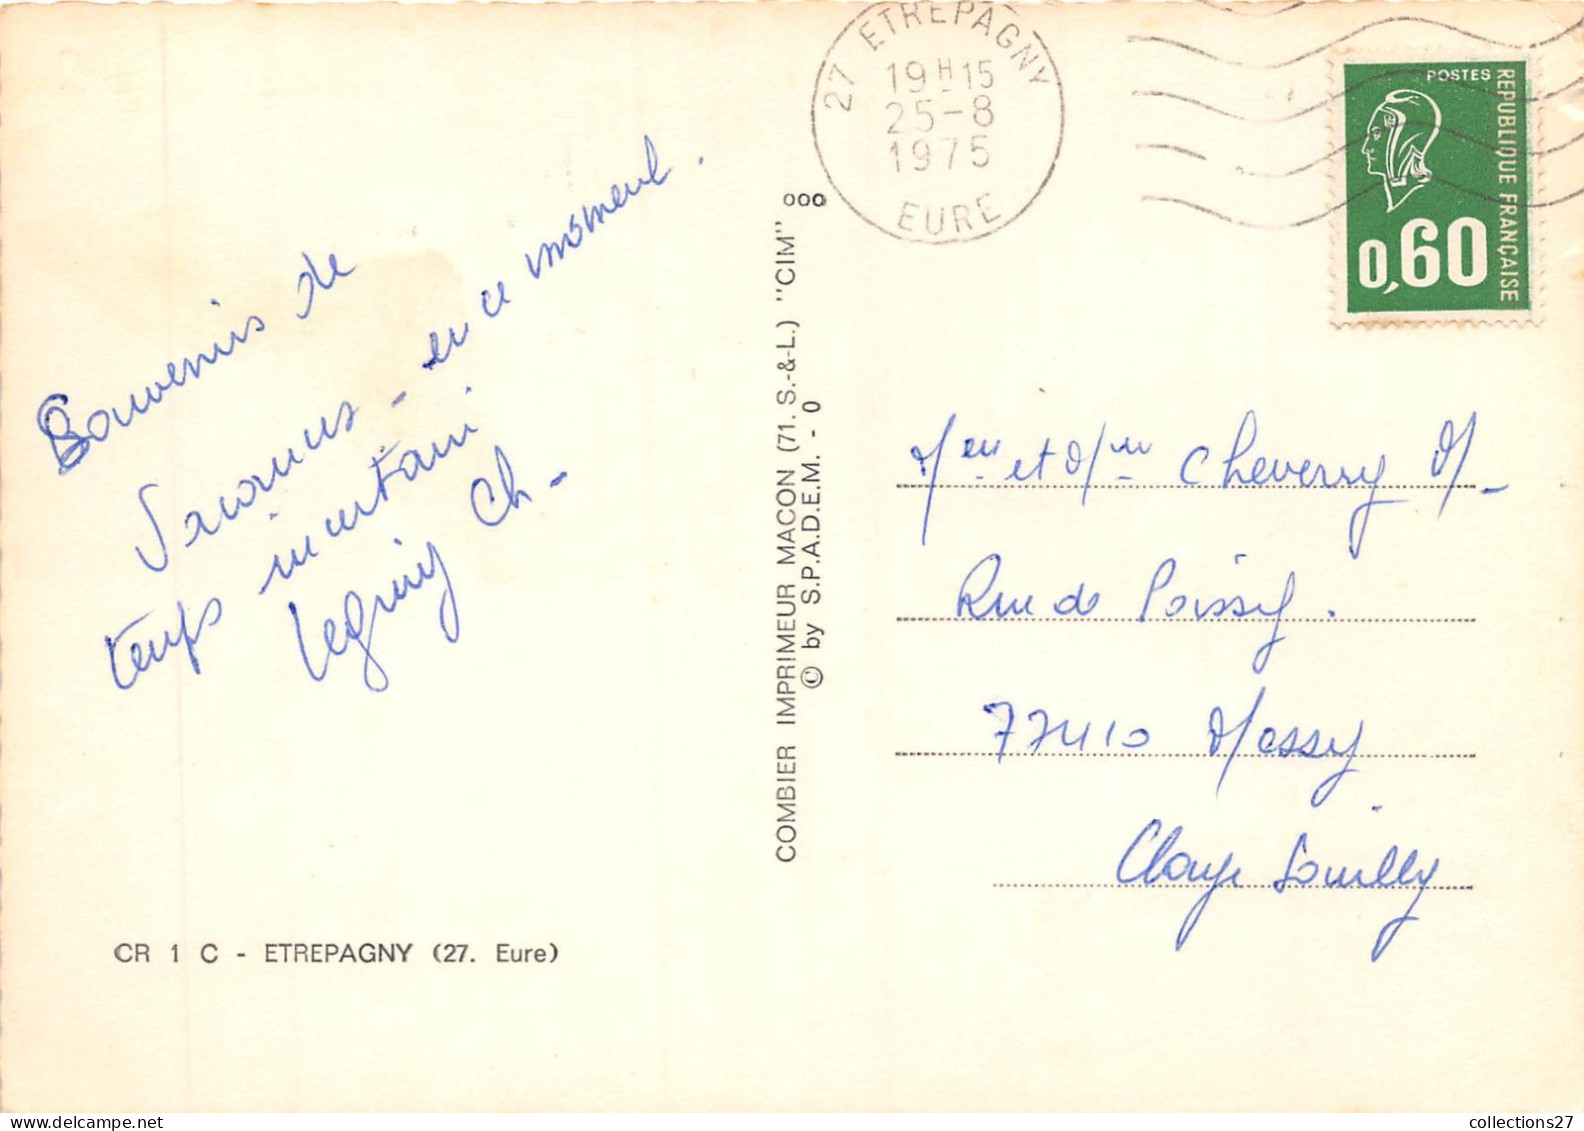 Souvenirs de
Vacances - en ce moment.
temps incertain
Ch -
CR 1 C - ETREPAGNY (27. Eure)
COMBIER IMPRIMEUR MACON (71. S.-&-L.) "CIM"
© by S.P.A.D.E.M. - 0
ooo
27 ETREPAGNY
19H15
25-8
1975
EURE
POSTES
REPUBLIQUE FRANÇAISE
0,60
et Cheverry M -
Rue de Poissy.
77410 Messy
Claye Souilly
collections27